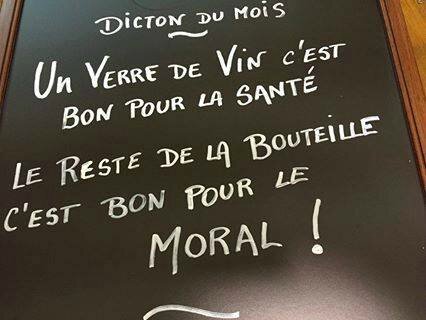 DICTON DU MOIS
UN VERRE DE VIN C'EST
BON POUR LA SANTÉ
LE RESTE DE LA BOUTEILLE
C'EST BON POUR LE
MORAL !